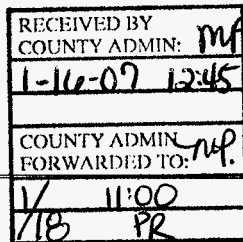 RECEIVED BY
COUNTY ADMIN: mp
1-16-07 12:45
COUNTY ADMIN
FORWARDED TO: mp.
1/18 11:00
PR